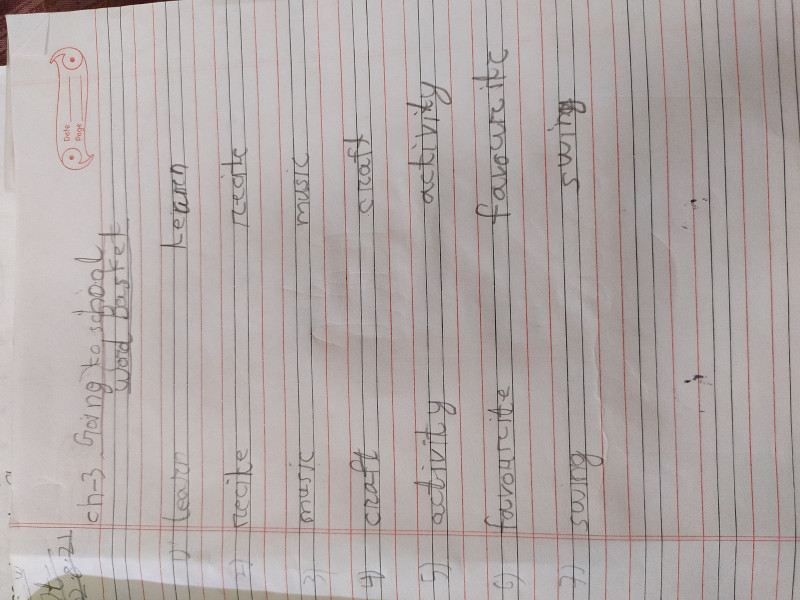 Date
Page
ch-3 Going to school
Word Basket
1) learn learn
2) recite recite
3) music music
4) craft craft
5) activity activity
6) favourite favourite
7) swing swing